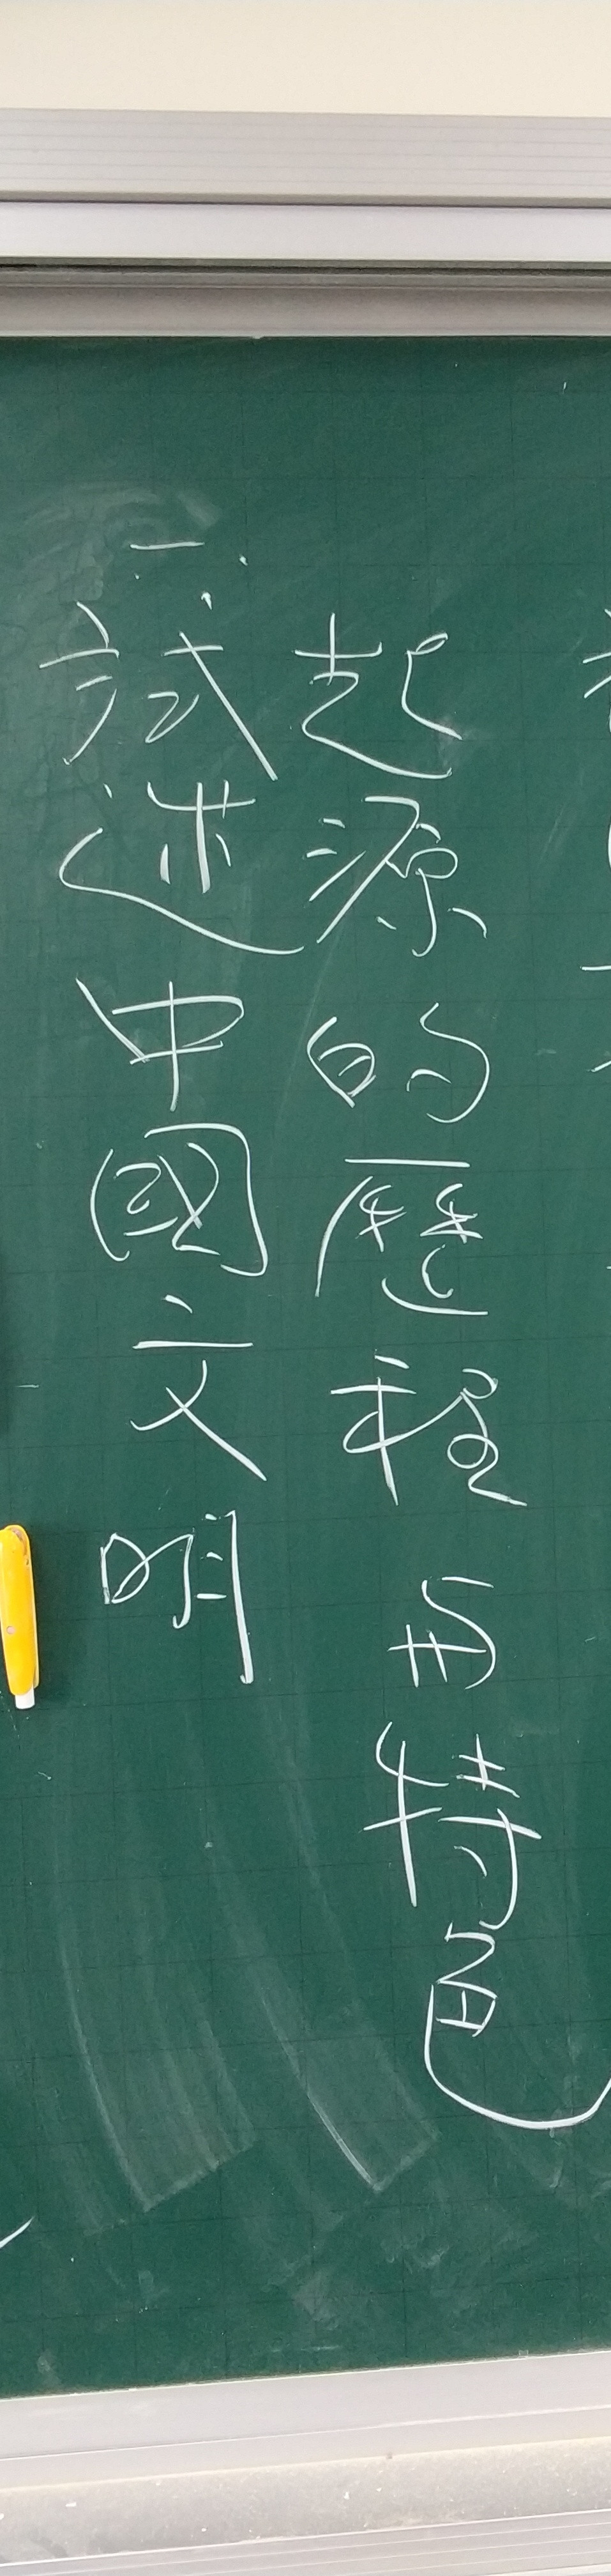 一、試述中國文明
起源的歷程与特色